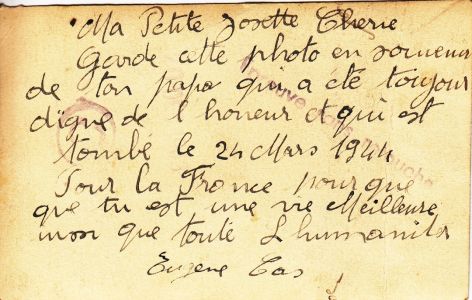 Ma Petite Josette Cherie
Garde cette photo en souvenir
de ton papa qui a été toujour
digne de l honeur et qui est
tombé le 24 Mars 1944
Pour la France pour que
que tu est une vie Meilleure
insi que toute L humanite
Eugene Cas